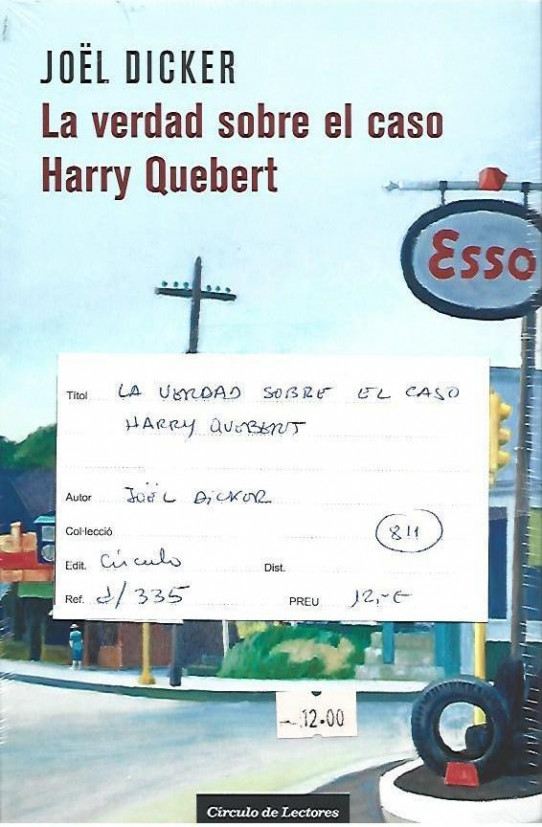 JOËL DICKER
La verdad sobre el caso
Harry Quebert
Esso
Títol LA VERDAD SOBRE EL CASO
HARRY QUEBERT
Autor JOËL DICKER
Col·lecció 811
Edit. Círculo Dist.
Ref. d/335 PREU 12,-€
12.00
Círculo de Lectores